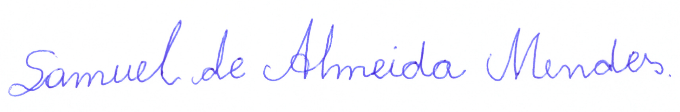 Samuel de Almeida Mendes.